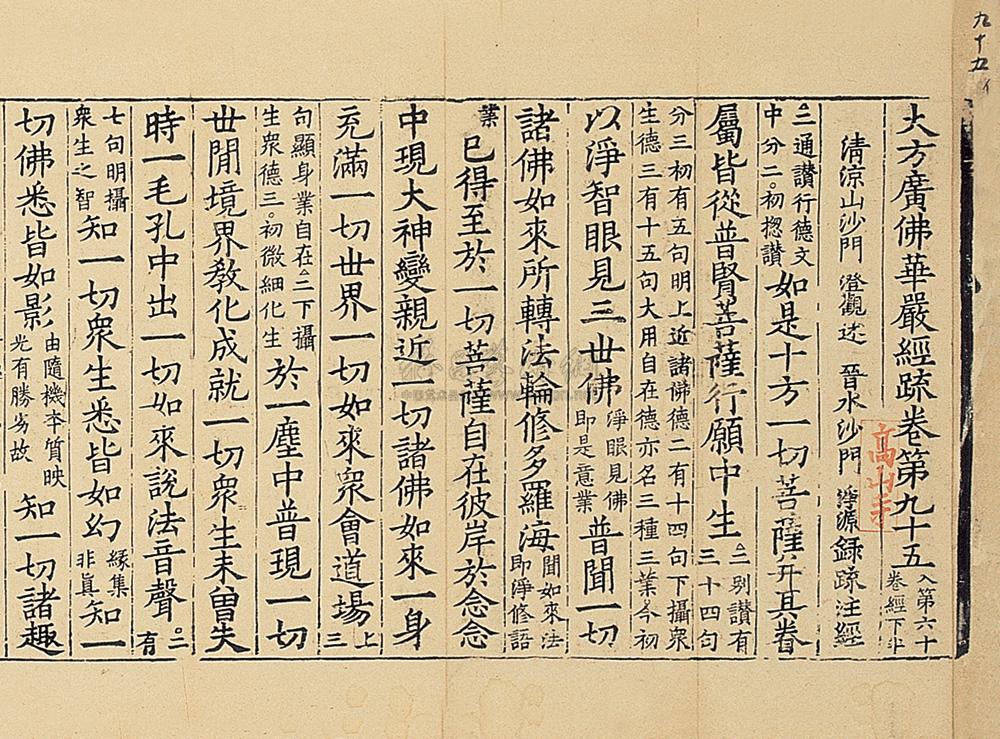 九十五
大方廣佛華嚴經䟽卷第九十五 入第六十卷經下半
清涼山沙門 澄觀述 晉水沙門 淨源録䟽注經
二通讃行德文中分二初揔讃 如是十方一切菩薩并其眷
屬皆從普賢菩薩行願中生 二別讃有三十四句
分三初有五句明上近諸佛德二有十四句下攝衆生德三有十五句大用自在德亦名三種三業今初
以淨智眼見三世佛 淨眼見佛即是意業 普聞一切
諸佛如來所轉法輪修多羅海 聞如來法即淨修語
業 已得至於一切菩薩自在彼岸於念念
中現大神變親近一切諸佛如來一身
充滿一切世界一切如來衆會道場 上三
句顯身業自在二下攝生衆德三初微細化生 於一塵中普現一切
世閒境界教化成就一切衆生未曽失
時一毛孔中出一切如來說法音聲 二有
七句明攝衆生之智 知一切衆生悉皆如幻 緣集非眞 知一
切佛悉皆如影 由隨機本質映光有勝劣故 知一切諸趣
高山寺